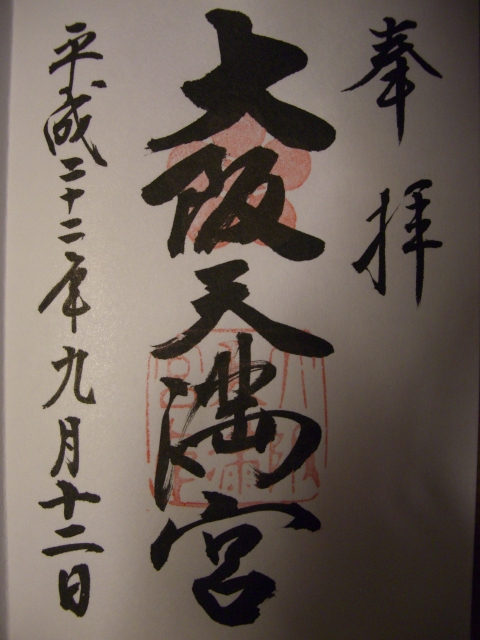 奉拝
大阪天満宮
平成二十二年九月十二日